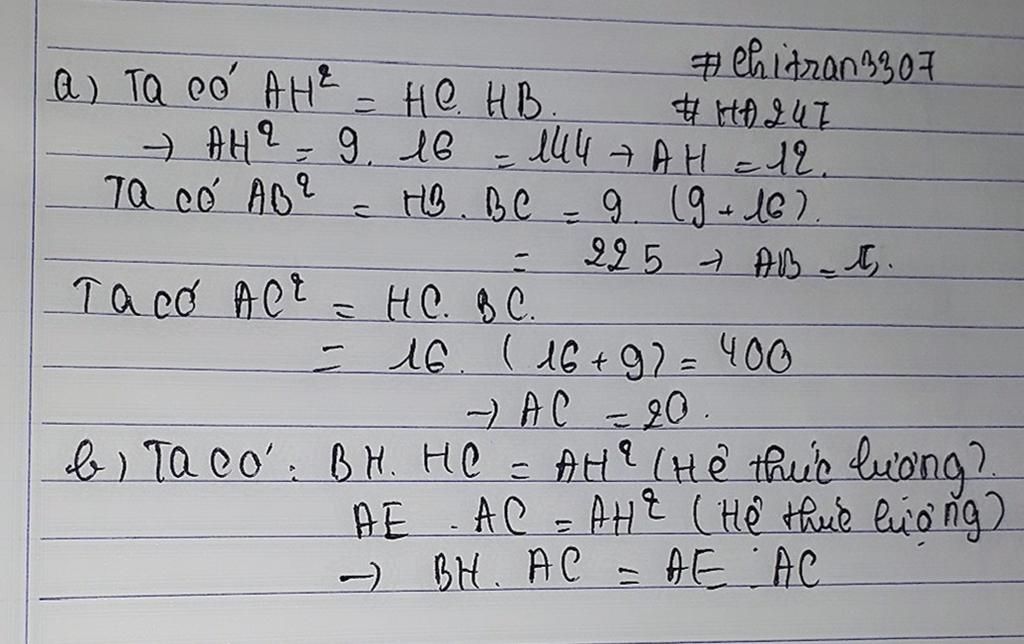 #Chitran3307
a) Ta có AH² = HC. HB.
#HD247
→ AH² = 9. 16 = 144 → AH = 12.
Ta có AB² = HB. BC = 9. (9+16).
= 225 → AB = 15.
Ta có AC² = HC. BC.
= 16. (16+9) = 400
→ AC = 20.
b) Ta có: BH. HC = AH² (Hệ thức lương).
AE . AC = AH² (Hệ thức lượng)
→ BH. AC = AE . AC